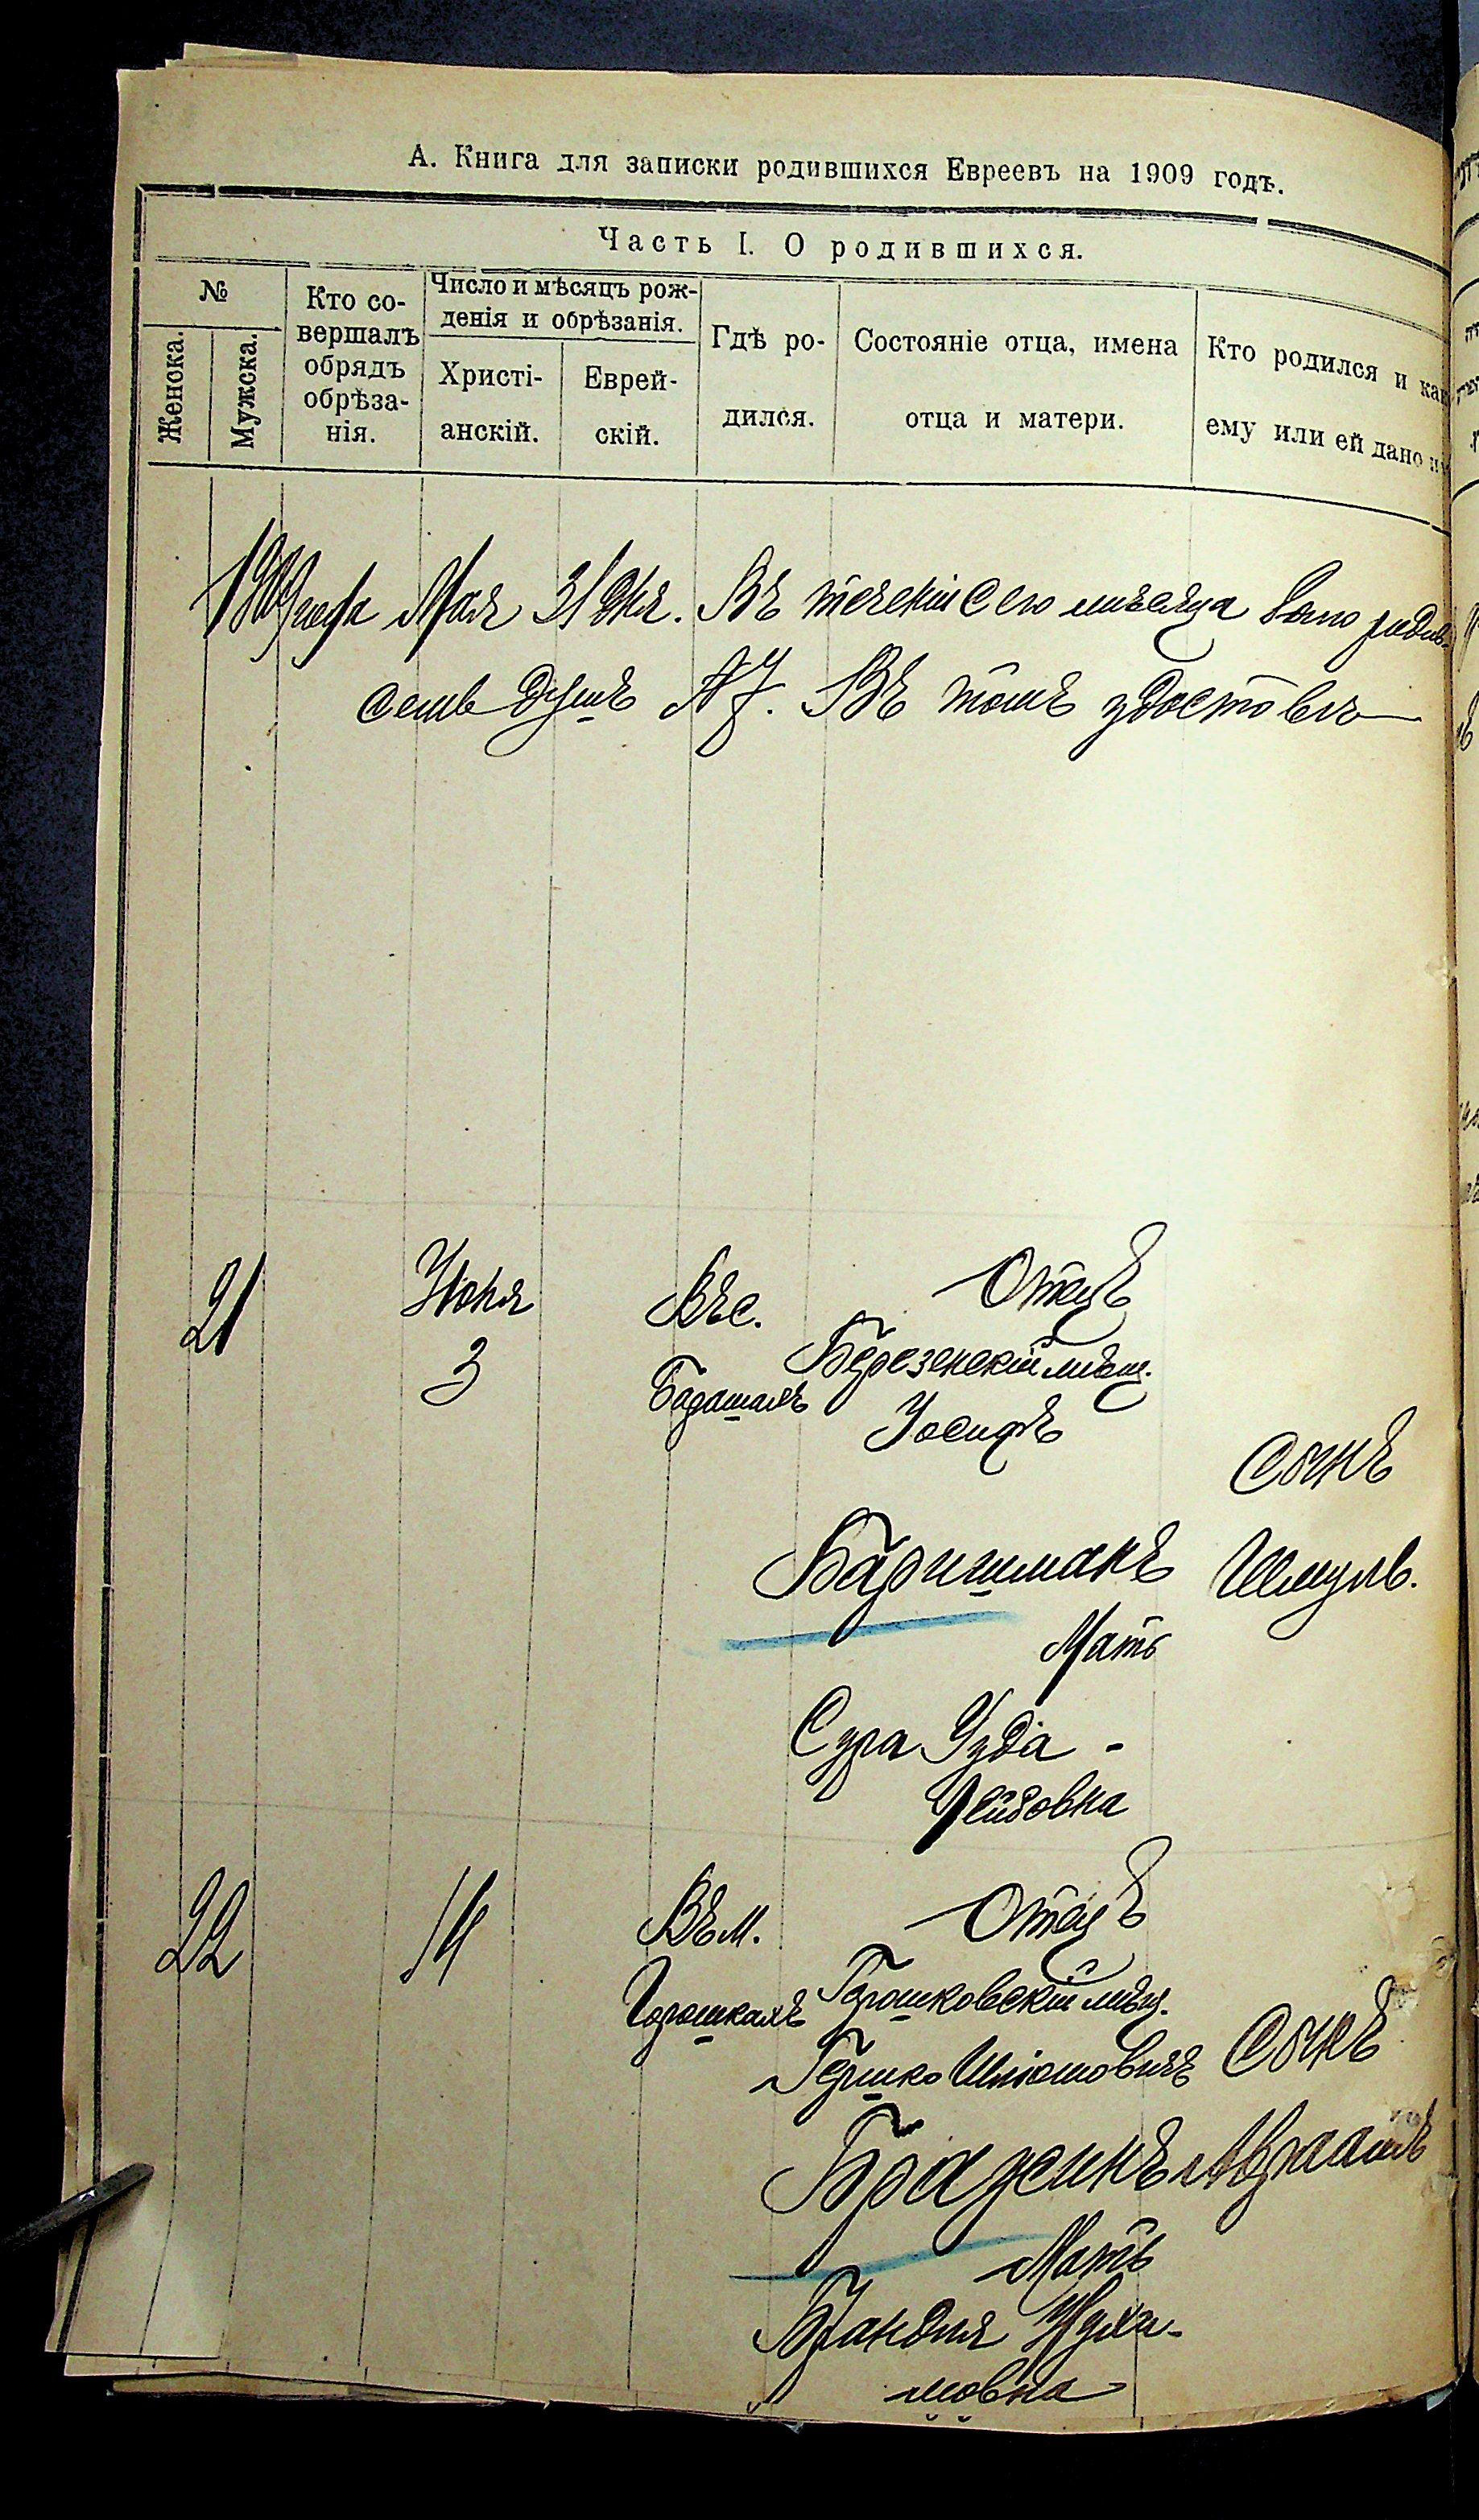 А. Книга для записки родившихся Евреевъ на 1909 годъ.
Часть I. О родившихся.
№
Женска.
Мужска.
Кто со-
вершалъ
обрядъ
обрѣза-
нія.
Число и мѣсяцъ рож-
денія и обрѣзанія.
Христі-
анскій.
Еврей-
скій.
Гдѣ ро-
дился.
Состояніе отца, имена
отца и матери.
Кто родился и как
ему или ей дано и
1909 года Мая 31 дня. Въ теченіи сего мѣсяца было родив
семь душъ №7. Въ томъ удостовѣ
21
Іюня
3
Въ с.
Бараша́хъ
Отецъ
Березенскій мѣщ.
Іосифъ
Баришманъ
Мать
Сура Удіа -
Лейбовна
Сынъ
Шмуль.
22
14
Въ м.
Горошкахъ
Отецъ
Горошковскій мѣщ.
Гершко Шліомовичъ
Бразинъ
Мать
Брандля
мовна
Сынъ
Авраамъ